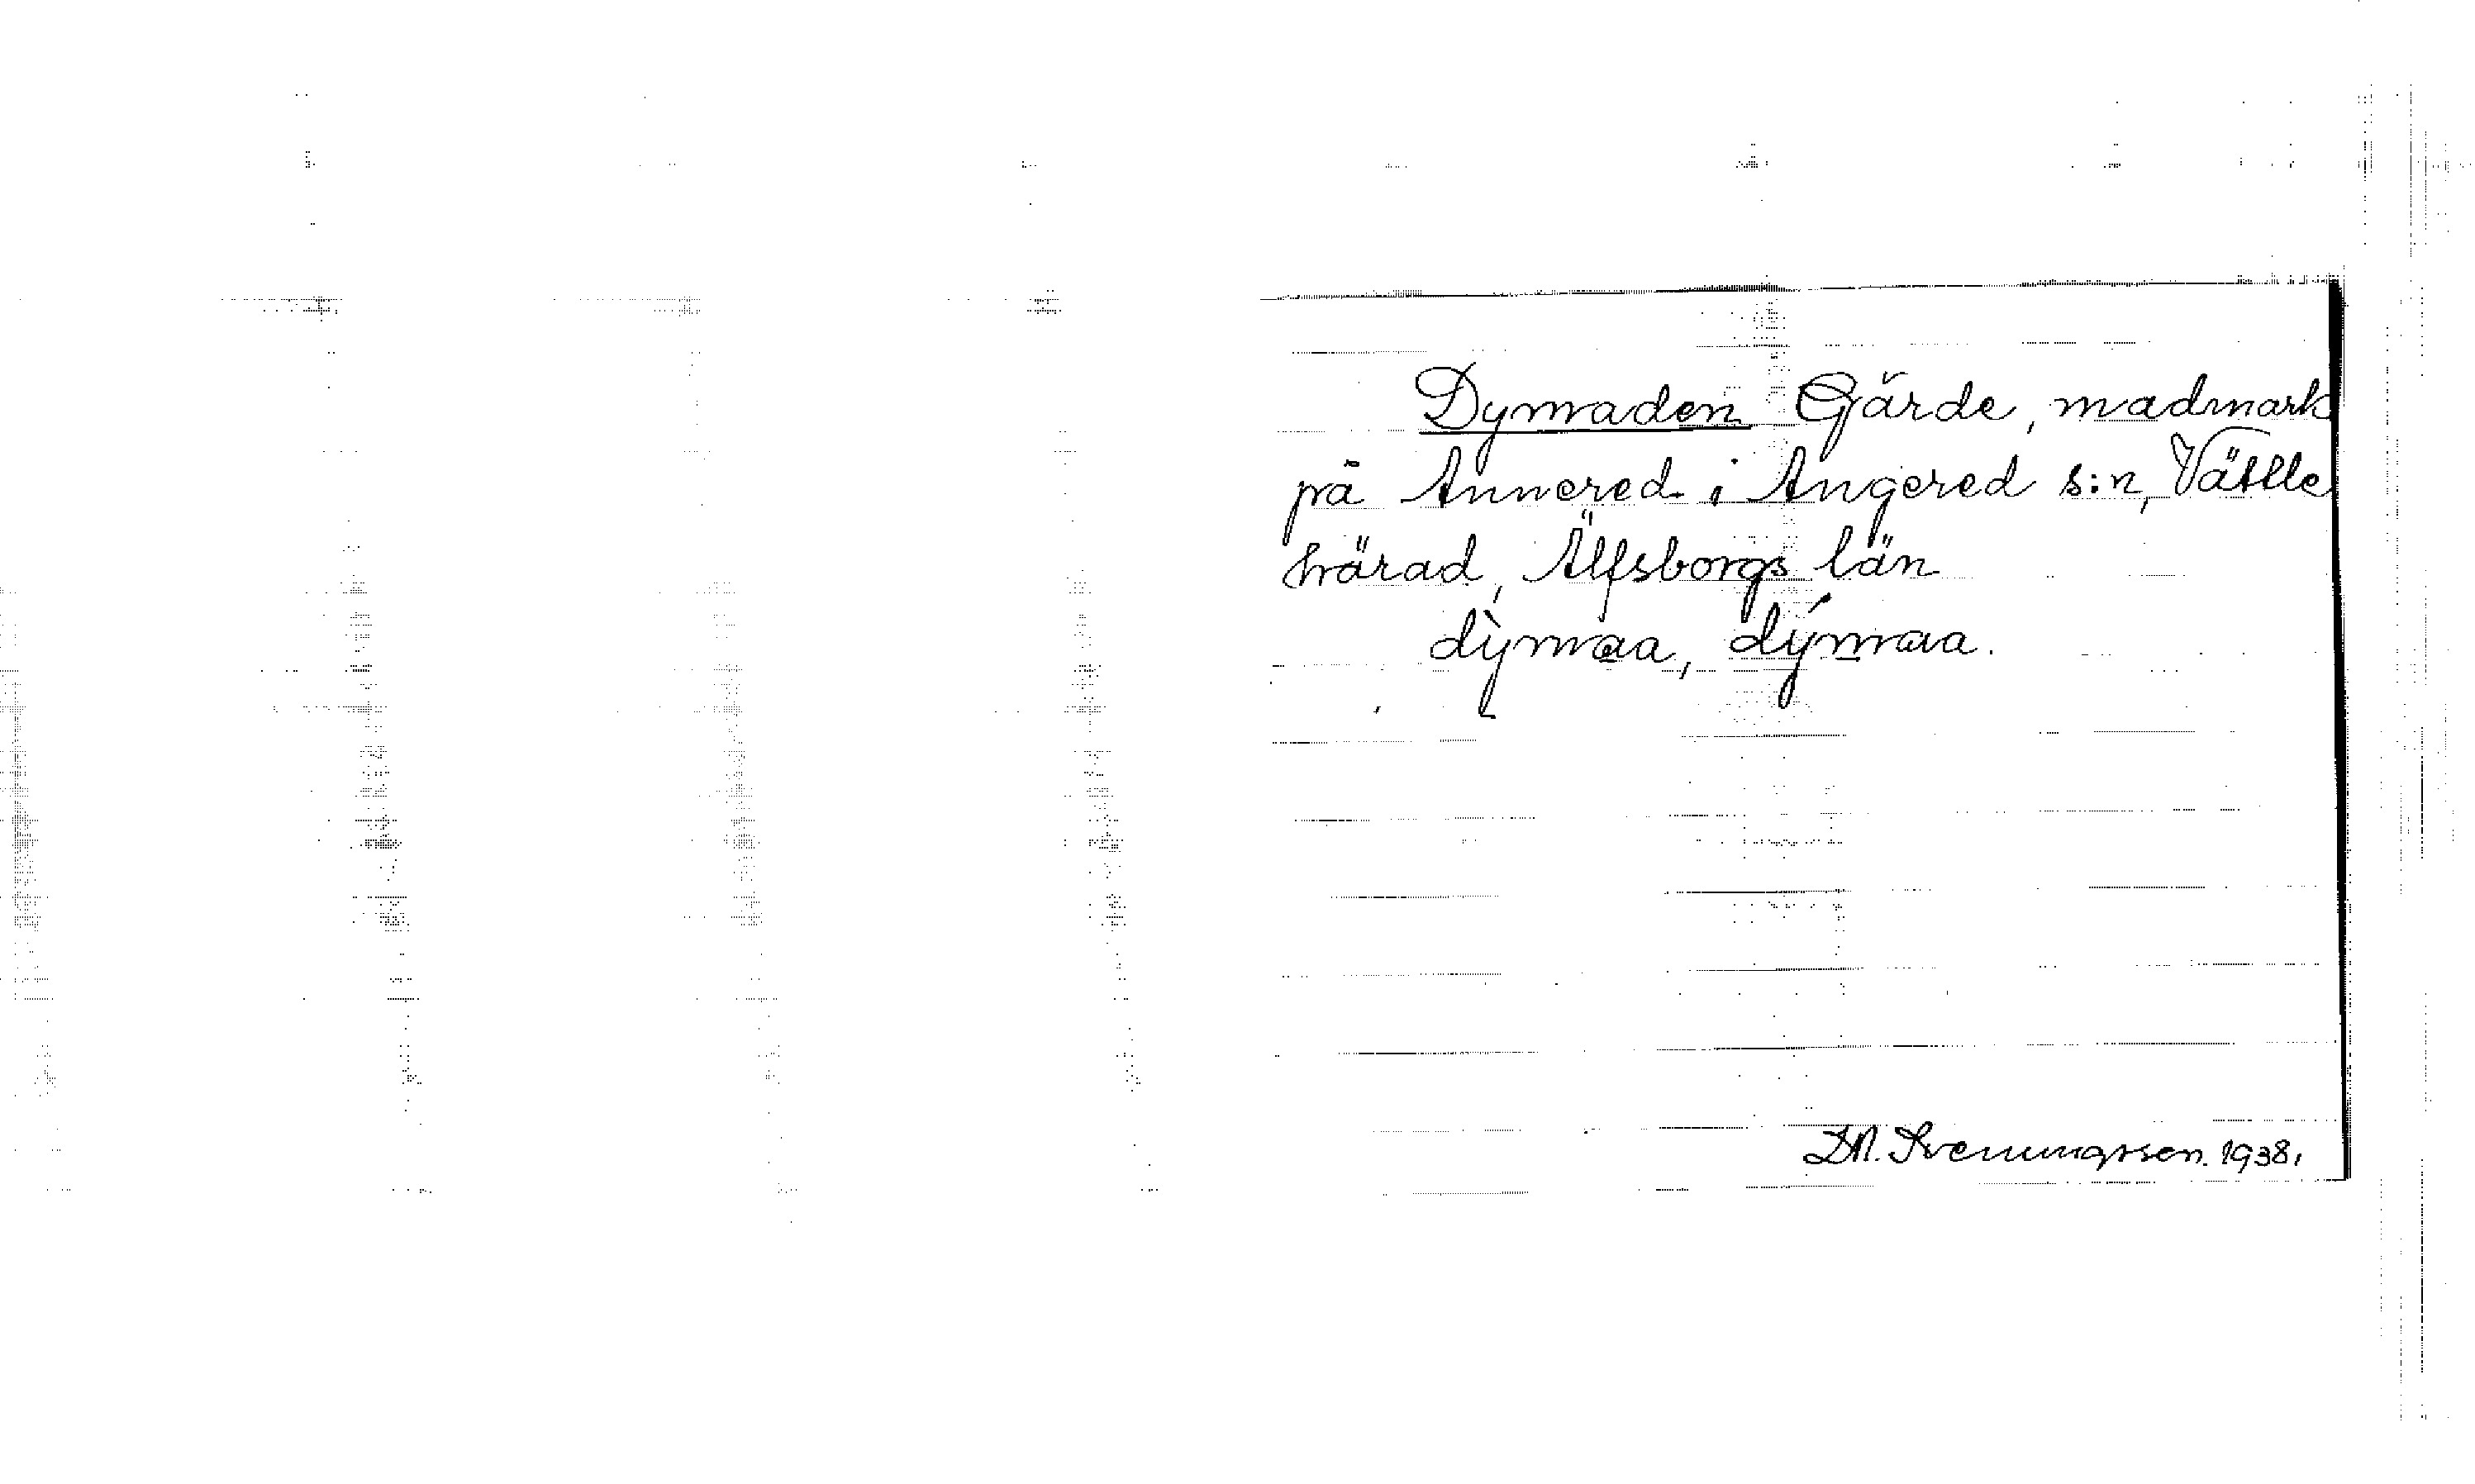 Dymaden Gärde, madmark
på Annered i Angered s:n, Vättle
härad, Älfsborgs län
dỳmaa, dýmaa.
D.N. Svenungsson. 1938.